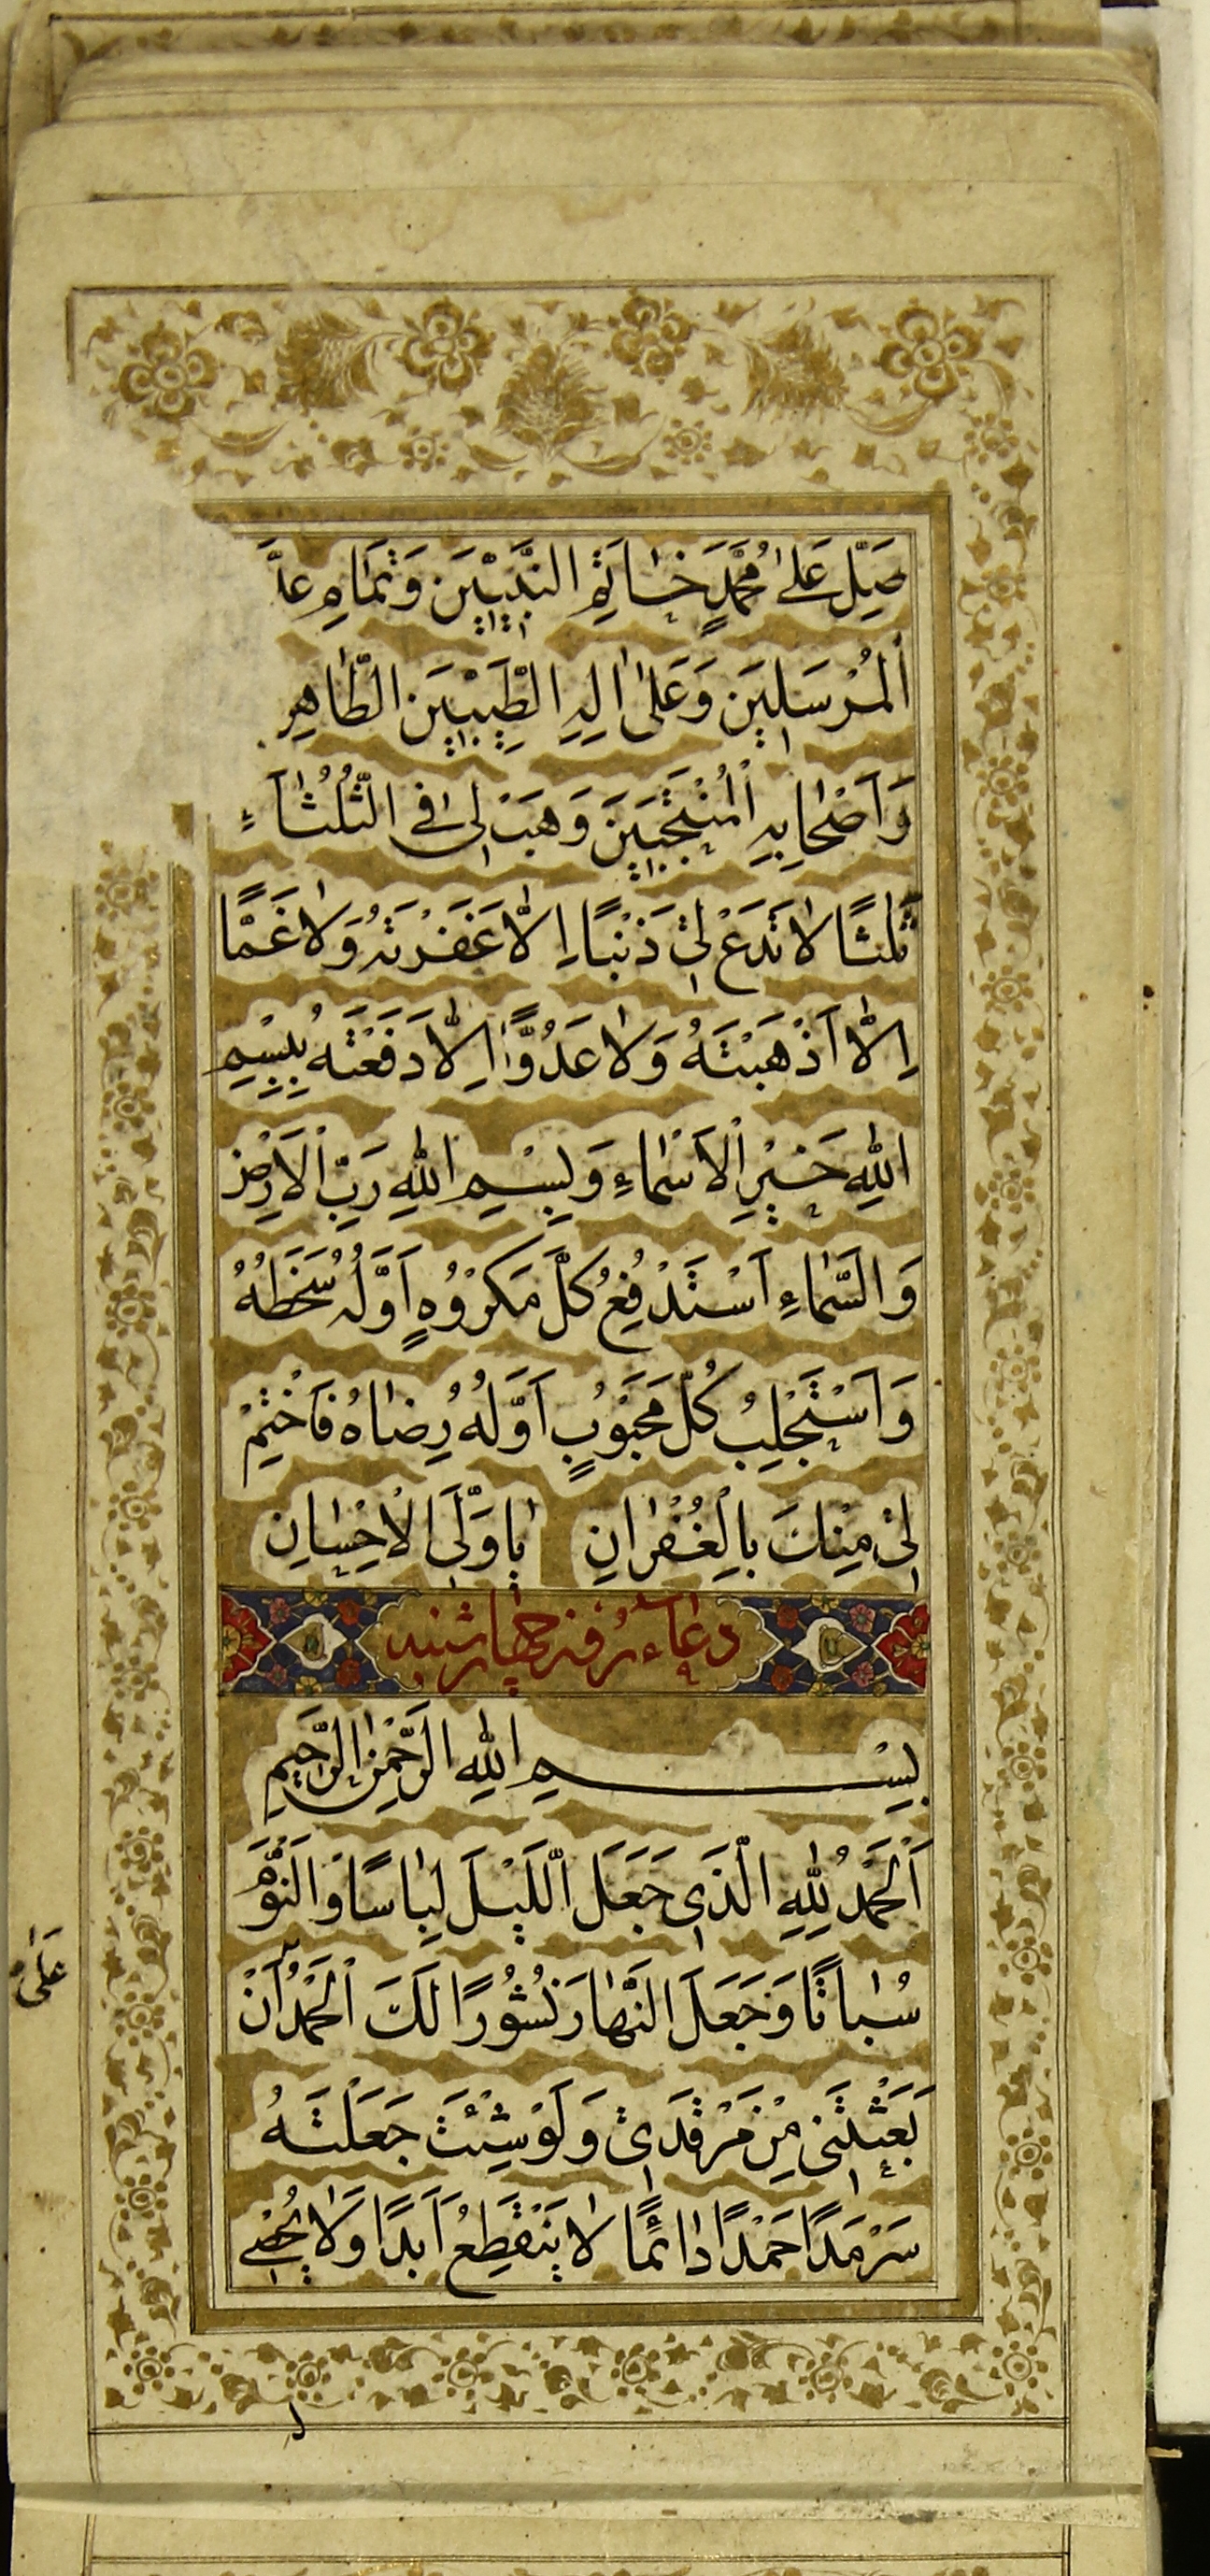 صَلِّ عَلىٰ مُحَمَّدٍ خٰاتَمِ النَّبِيّيْنَ وَتَمٰامِ عِدَّ
اَلْمُرْسَلِيَن وَعَلىٰ اٰلِهِ الطَّيِّبيْنَ الطّٰاهِرِ
وَاَصْحٰابِهِ الْمُنْتَجَبيَنَ وَهَبْ لى فِى الثُّلُثٰاَءِ
ثَلٰثًا لاٰ تَدَعْ لى ذَنْبًا اِلاّٰ غَفَرْتَهُ وَلاٰ غَمًّا
اِلاّٰ اَذْهَبْتَهُ وَلاٰ عَدُوًّا اِلاّٰ دَفَعْتَهُ بِبِسْمِ
اللهِ خَيْرِ الْاَسْمٰاءِ وَبِسْمِ اللهِ رَبِّ الْاَرْضِ
وَالسَّمٰاءِ اَسْتَدْفِعُ كُلَّ مَكْرُوْهٍ اَوَّلُهُ سُخَطُهُ
وَاَسْتَجْلِبُ كُلَّ مَحْبُوْبٍ اَوَّلُهُ رِضٰاهُ فَاخْتِمْ
لى مِنْكَ بِالْغُفْرٰانِ يٰا وَلِّىَ الْاِحْسٰانِ
دعاء روز چهارشنبه
بِسْمِ اللهِ الرَّحْمٰنِ الرَّحيمِ
اَلْحَمْدُ لِلّٰهِ الَّذى جَعَلَ اللَّيْلَ لِبٰاسًا وَالنَّوْمَ
سُبٰاتًا وَجَعَلَ النَّهٰارَ نُشُورًا لَكَ الْحَمْدُ اَنْ
عَلىٰ
بَعَثْتَنى مِنْ مَرْقَدى وَلَوْ شِئْتَ جَعَلْتَهُ
سَرْمَدًا حَمْدًا دٰائمًا لاٰ يَنْقَطِعُ اَبَدًا وَلاٰ يُحْصى